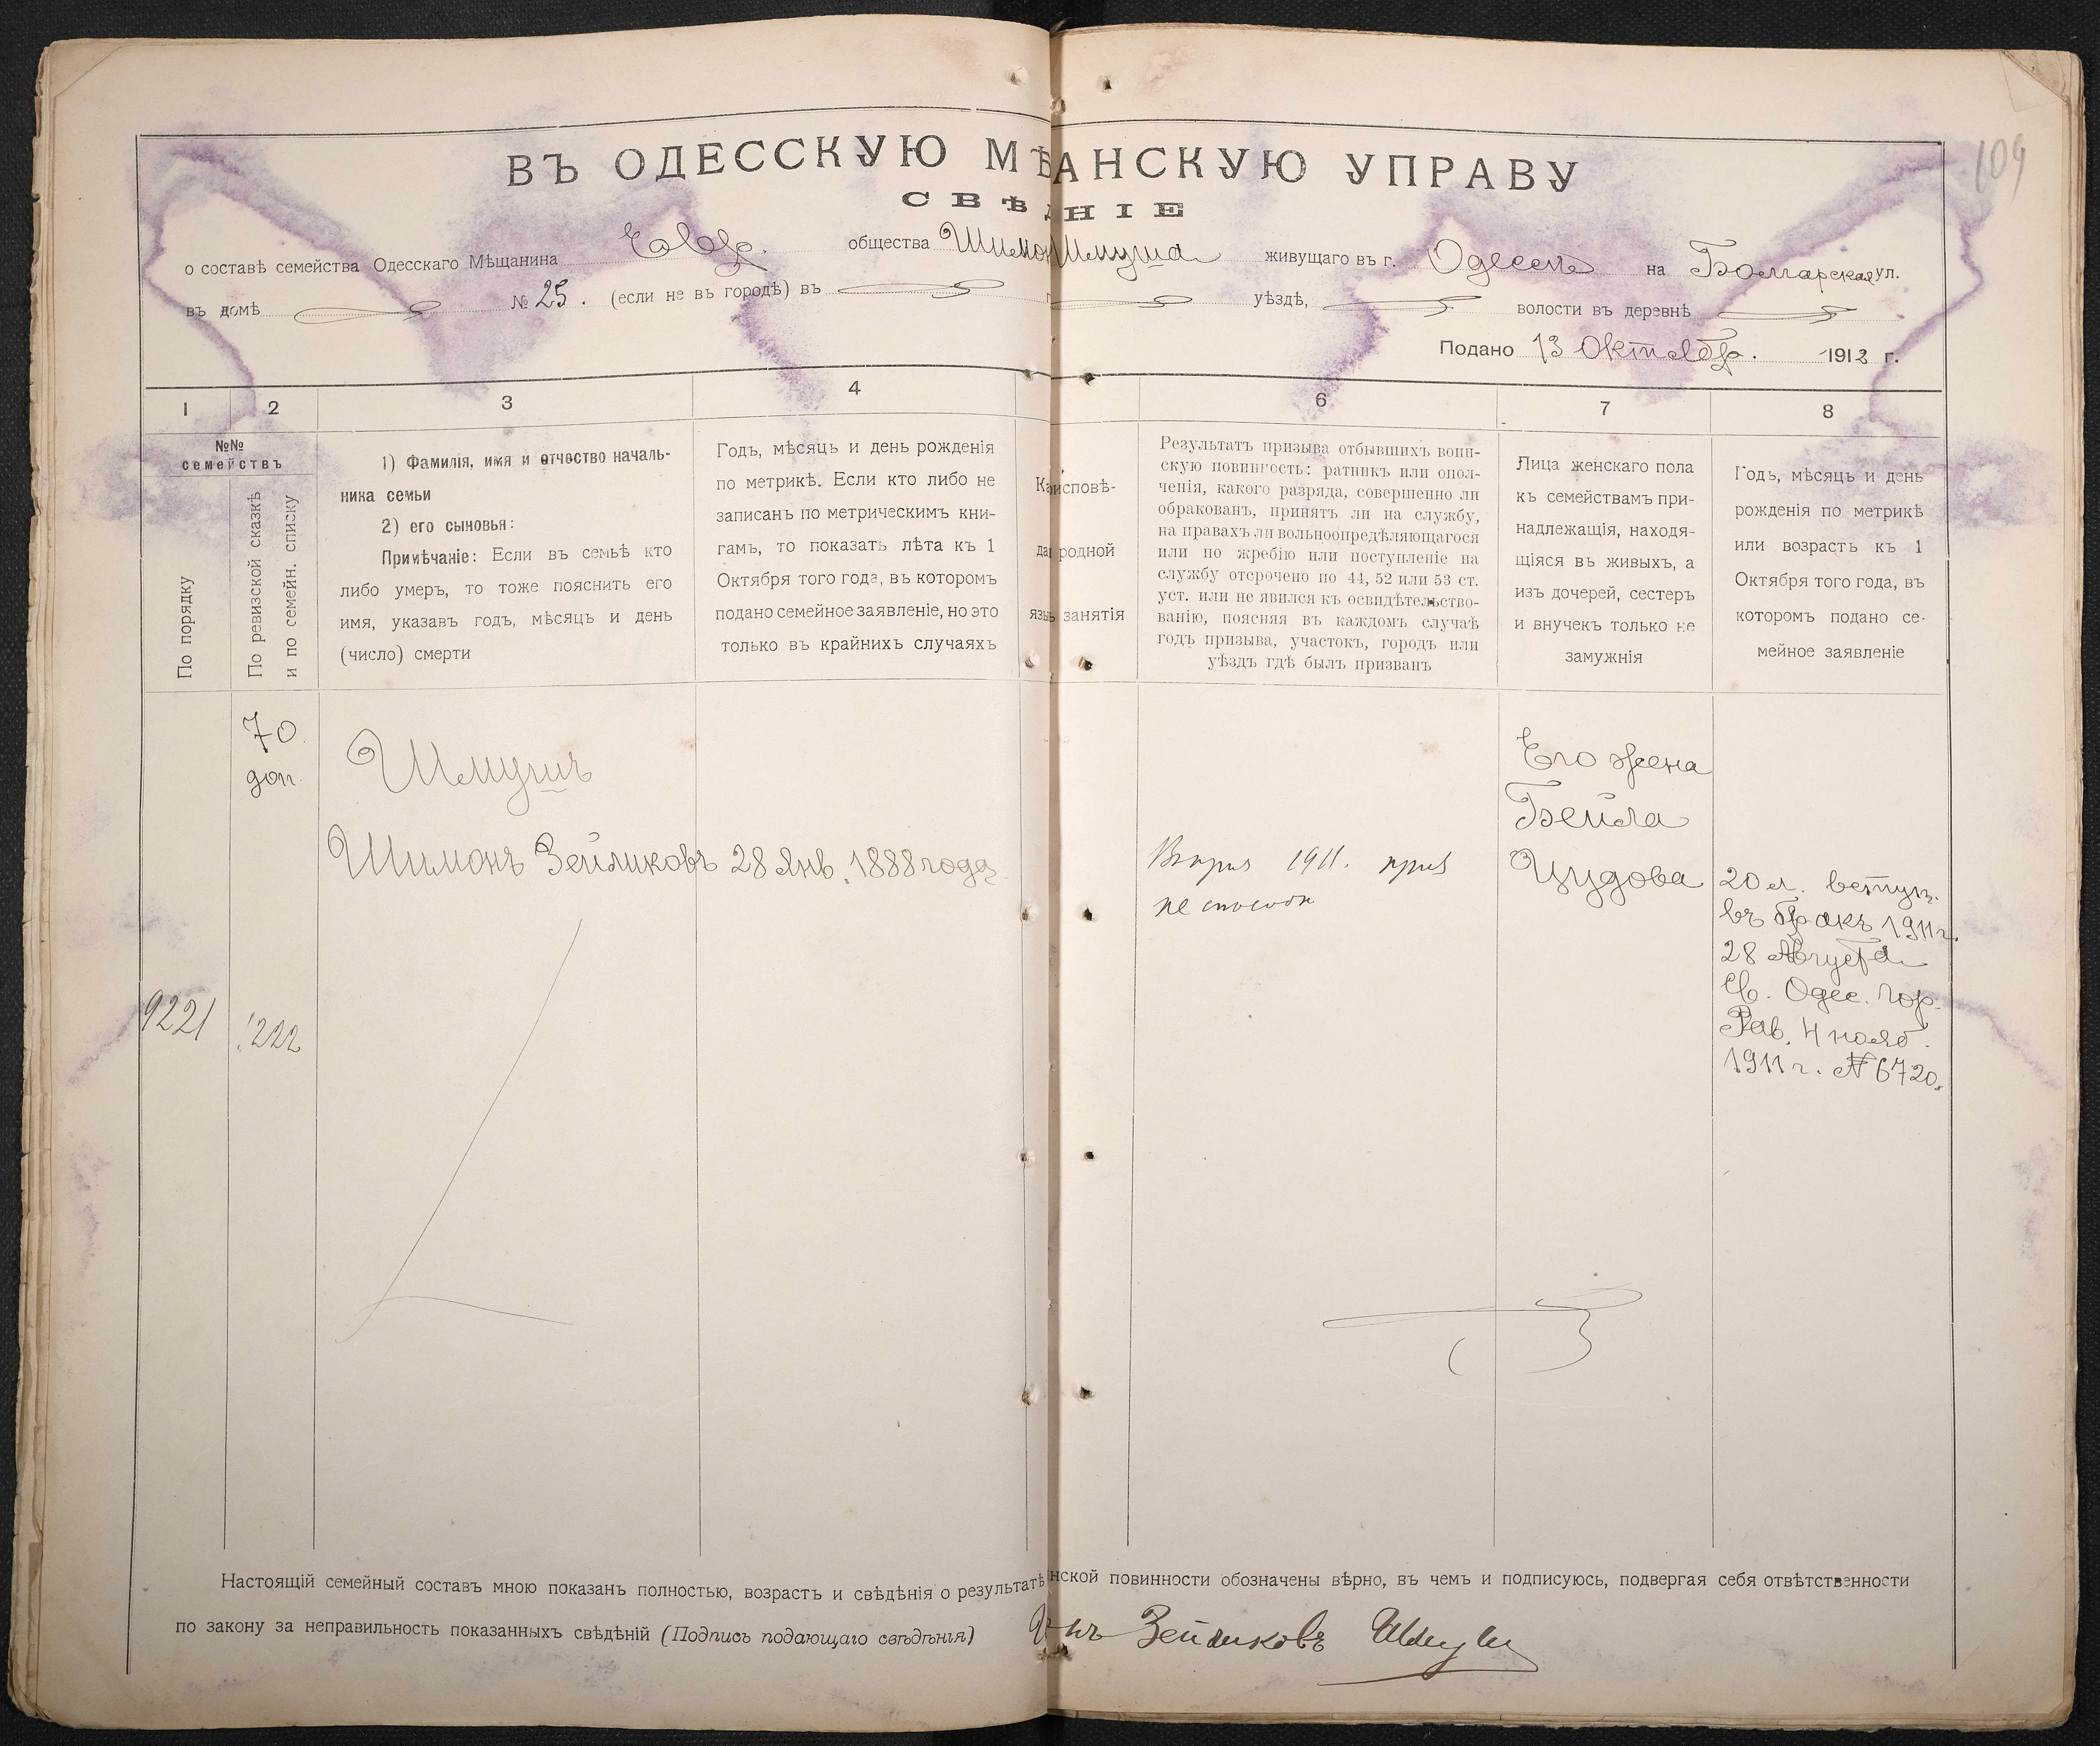 109
ВЪ ОДЕССКУЮ МѢ АНСКУЮ УПРАВУ
СВѢД НІЕ
о составѣ семейства Одесскаго Мѣщанина Евр. общества Шимон Шмуша живущаго въ г. Одессѣ на Болгарская ул.
въ домѣ № 25. (если не въ городѣ) въ уѣздѣ, волости въ деревнѣ
Подано 13 Октябр. 1912 г.
1 2 3 4 6 7 8
№№
семействъ
По порядку
По ревизской сказкѣ
и по семейн. списку
1) Фамилія, имя и отчество началь-
ника семьи
2) его сыновья:
Примѣчаніе: Если въ семьѣ кто
либо умеръ, то тоже пояснить его
имя, указавъ годъ, мѣсяцъ и день
(число) смерти
Годъ, мѣсяцъ и день рожденія
по метрикѣ. Если кто либо не
записанъ по метрическимъ кни-
гамъ, то показать лѣта къ 1
Октября того года, въ которомъ
подано семейное заявленіе, но это
только въ крайнихъ случаяхъ
Ка исповѣ-
да родной
язы занятія
Результатъ призыва отбывшихъ воин-
скую повинность: ратникъ или опол-
ченія, какого разряда, совершенно ли
обракованъ, принятъ ли на службу,
на правахъ ли вольноопредѣляющагося
или по жребію или поступленіе на
службу отсрочено по 44, 52 или 53 ст.
уст. или не явился къ освидѣтельство-
ванію, поясняя въ каждомъ случаѣ
годъ призыва, участокъ, городъ или
уѣздъ гдѣ былъ призванъ
Лица женскаго пола
къ семействамъ при-
надлежащія, находя-
щіяся въ живыхъ, а
изъ дочерей, сестеръ
и внучекъ только не
замужнія
Годъ, мѣсяцъ и день
рожденія по метрикѣ
или возрасть къ 1
Октября того года, въ
которомъ подано се-
мейное заявленіе
70
доп.
Шмушъ
Шимонъ Зейликовъ 28 Янв. 1888 года
9221
1222
1911. приз
не способн
Его жена
Бейла
Цудова
20 л. вступ.
въ бракъ 1911 г.
28 Августа
Св. Одес. Гор.
Рав. 4 нояб.
1911 г. № 6720.
Настоящій семейный составъ мною показанъ полностью, возрастъ и свѣдѣнія о результатѣ нской повинности обозначены вѣрно, въ чемъ и подписуюсь, подвергая себя отвѣтственности
по закону за неправильность показанныхъ свѣдѣній (Подпись подающаго свѣдѣнія) Ш нъ Зейликовъ Шмуш